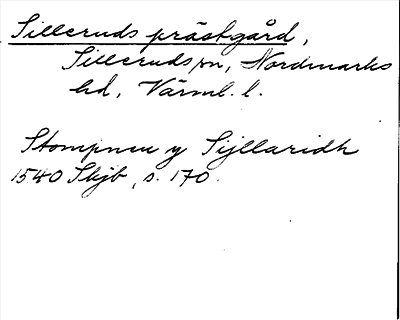 Silleruds prästgård,
Silleruds sn, Nordmarks
hd, Värml. l.
Stompnen y Sijllaridh
1540 Skjb, s. 170.